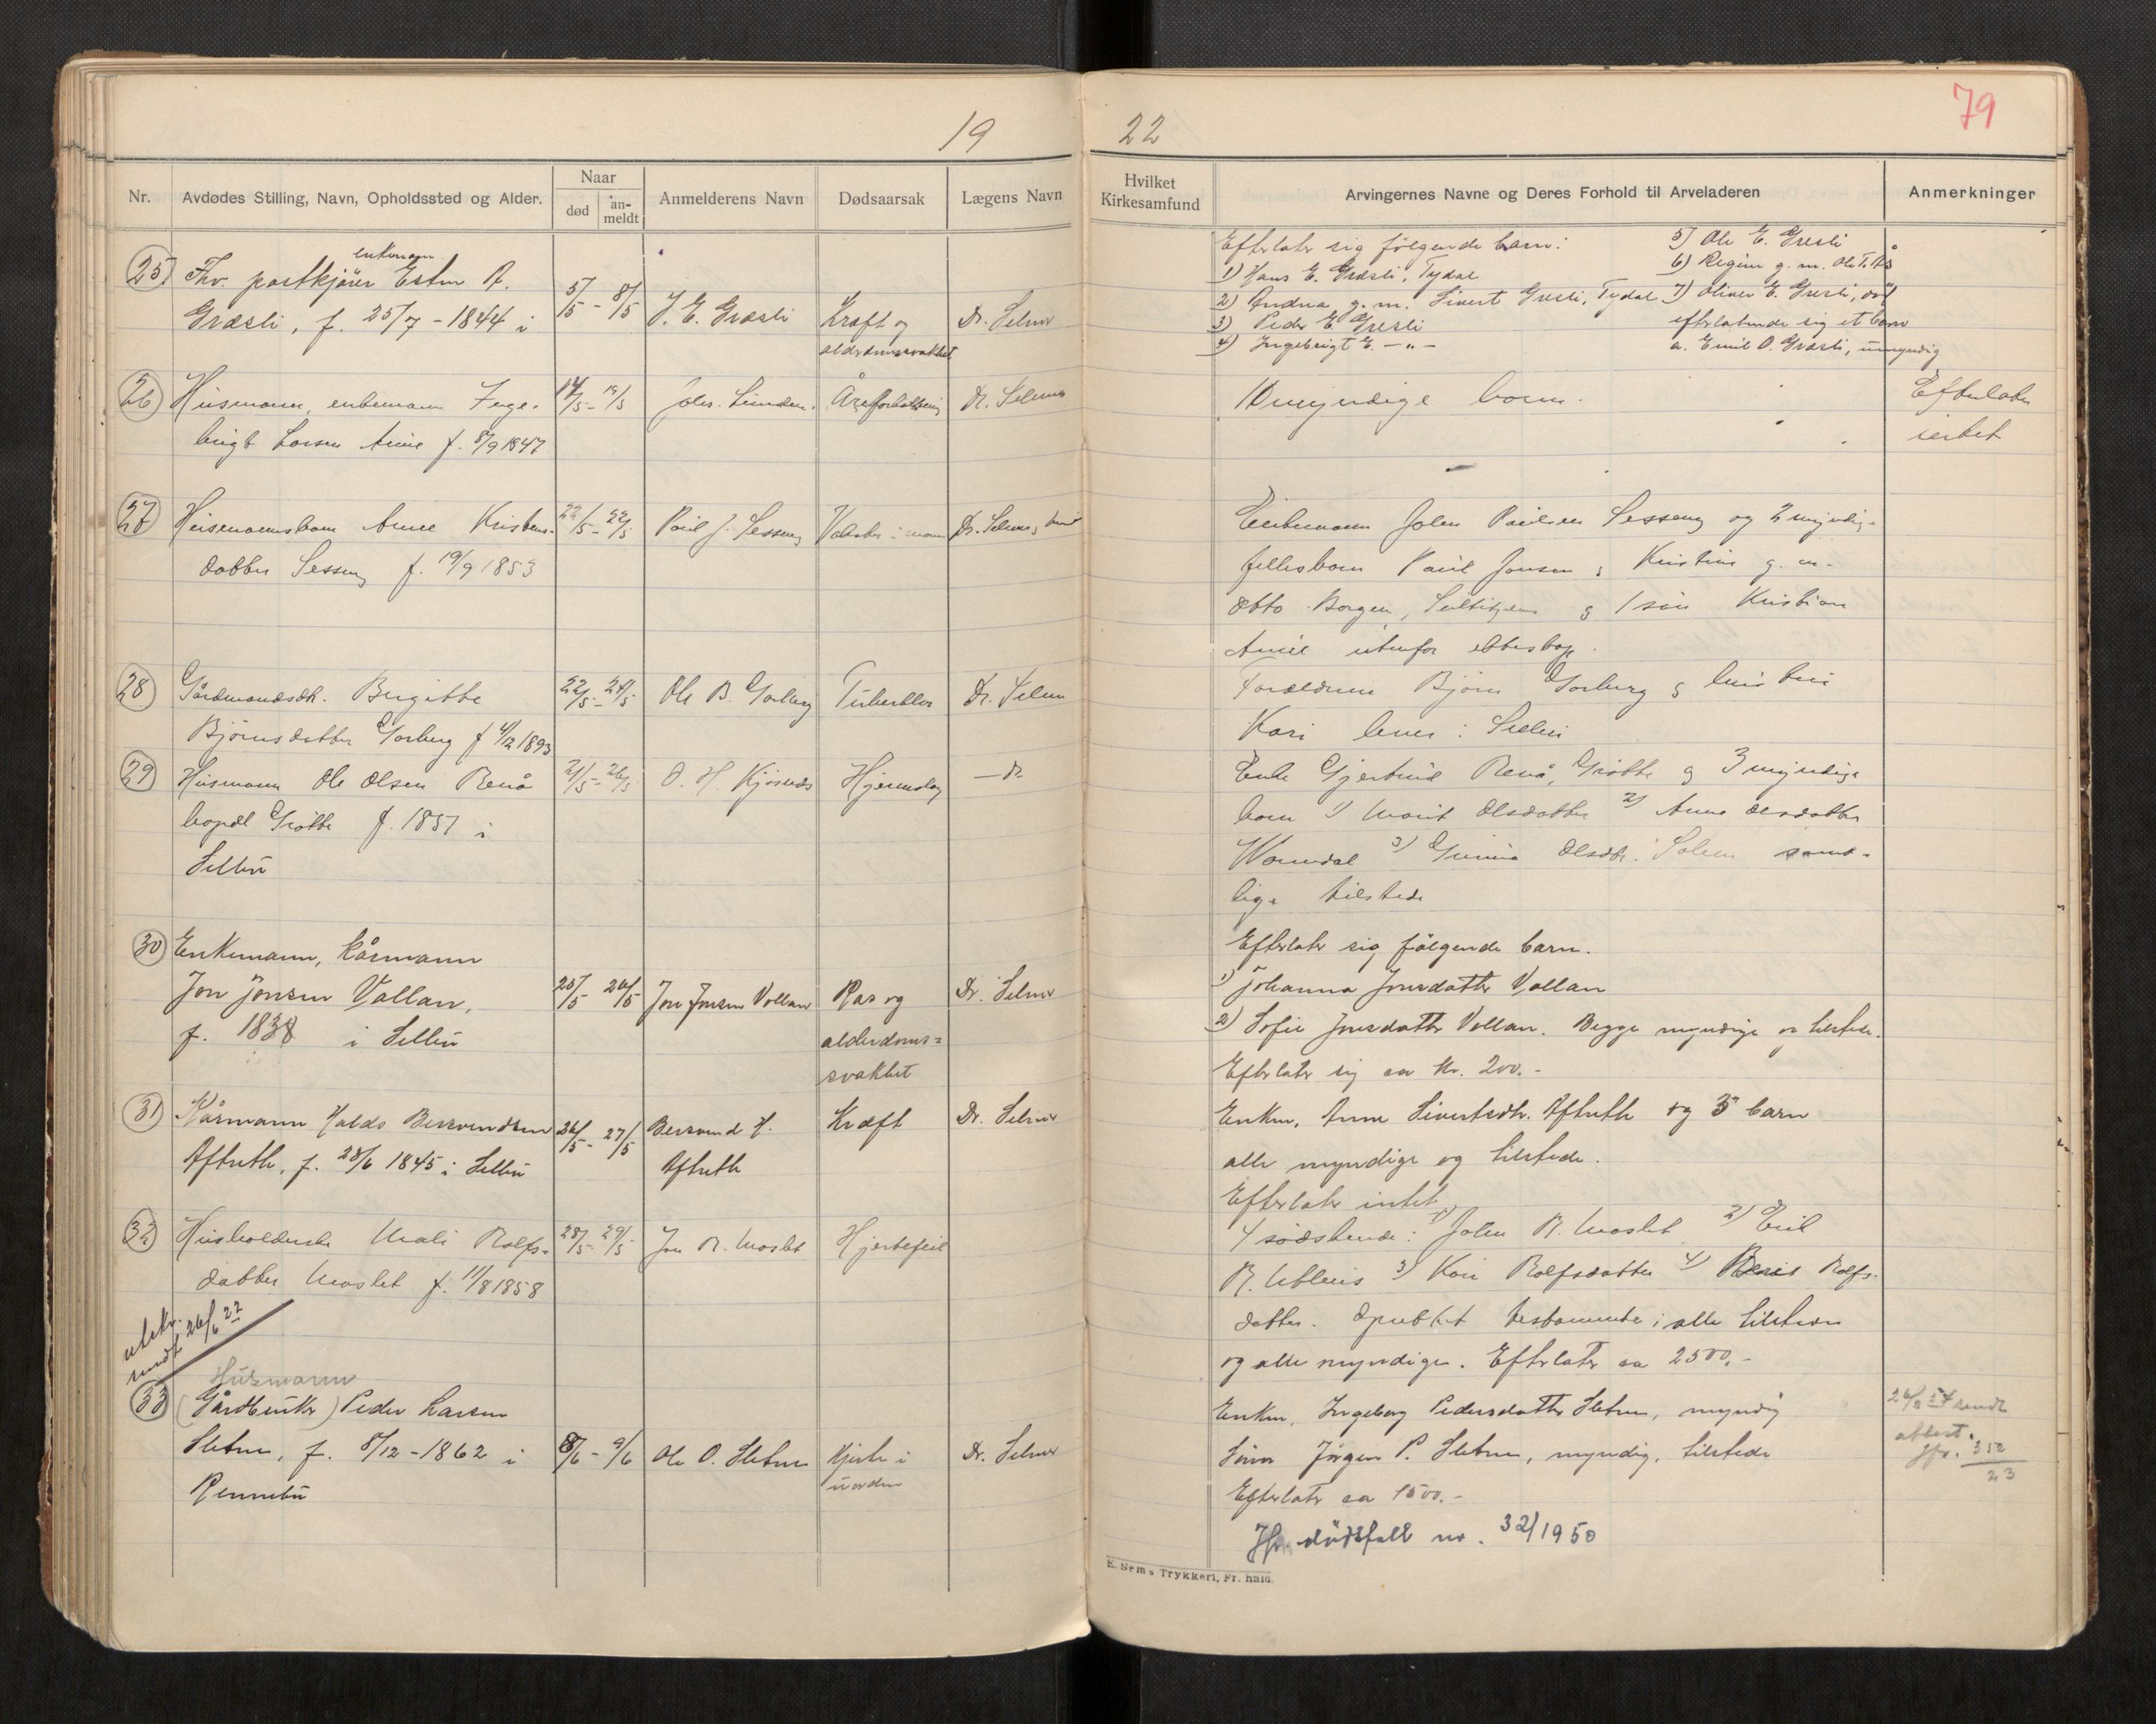 19
22
79
Nr.
Avdødes Stilling, Navn, Opholdssted og Alder.
Naar
død
an-
meldt
Anmelderens Navn
Dødsaarsak
Lægens Navn
Hvilket
Kirkesamfund
Arvingernes Navne og Deres Forhold til Arveladeren
Anmerkninger
25)
enkemann
Fhv. postkjører Esten A.
Græsli, f. 25/7 - 1844 i
5/5 - 8/5
J. E. Græsli
Kræft og
alderdomssvakhet
Dr. Selmer
Efterlater sig følgende barn:
1) Hans E. Græsli, Tydal
2) Andrea g. m. Sivert Græsli, Tydal
3) Peder E. Græsli
4) Ingebrigt E. - „ -
5) Ole E. Græsli
6) Regine g. m. Ole T. Ås
7) Oliver E. Græsli, død
efterlatende sig et barn
a. Emil O. Græsli, umyndig
26
Husmann, enkemann Inge-
brigt Larsen Aune f. 8/9 1847
14/5 - 19/5
Åreforkalkning
Dr. Selmer
Umyndige barn.
Efterlater
intet
27
Husmannskone Anne Kristens-
datter Sesseng f. 19/9 1853
22/5 - 22/5
Paul J. Sesseng
Dr. Selmer
Enkemann John Paulsen Sesseng og 2 myndige
fellesbarn Paul Jonsen & Kristine g. m.
Otto Borgen, & 1 søn Kristian
utenfor ekteskap.
28
Gårdmandsdtr. Birgitte
Bjørnsdatter Garberg f 4/12 1893
22/5 - 24/5
Ole B. Garberg
Tuberklos
Dr. Selmer
Forældrene Bjørn Garberg &
Kari lever i Selbu
29
Husmann Ole Olsen Renå
bopæl Grøtte f. 1851 i
Selbu
21/5 - 26/5
O. H. Kjøsnæs
Hjerneslag
- Dr
Enke Gjertrud Renå, Grøtte & 3 myndige
barn 1) Marit Olsdatter 2) Anne Olsdatter
3) Olsdtr. Solem samt-
lige tilstede
30
Enkemann, kårmann
Jon Jonsen Vollan,
f. 1838 i Selbu
25/5 26/5
Jon Jonsen Vollan
Ras og
alderdoms-
svakhet
Dr. Selmer
Efterlater sig følgende barn.
1) Johanna Jonsdatter Vollan
2) Sofie Jonsdatter Vollan. Begge myndige og tilstede.
Efterlater sig ca kr. 200.-
31
Kårmann Haldo Bersvendsen
Aftreth, f. 28/6 1845 i Selbu
26/5 - 27/5
Bersvend H.
Aftreth
Kræft
Dr. Selmer
Enken, Anne Sivertsdtr. Aftreth og 3 barn
alle myndige og tilstede.
Efterlater intet
32
Husholderske Mali Rolfs-
datter Moslet f. 11/8 1858
28/5 - 29/5
Jon R. Moslet
Hjertefeil
4 sødskende: 1) John R. Moslet 2)
R. 3) Kari Rolfsdatter 4) Berit Rolfs-
datter. Oprettet testamente; alle tilstede
og alle myndige. Efterlater ca 2500.-
utskr.
sendt 26/6 22
33
Husmann
(Gårdbruker) Peder Larsen
Sletne, f. 8/12 - 1862 i
Rennebu
8/6 - 9/6
Ole O. Sletne
Hjerte i
uorden
Dr. Selmer
Enken, Ingeborg Pedersdatter Sletne, myndig
Sønn Jørgen P. Sletne, myndig, tilstede
Efterlater ca 1500.-
Jfr. dødsfall nr. 32/1950
sendt
attest.
Jfr. 352
23
E. Sem s Trykkeri, Fr. hald.